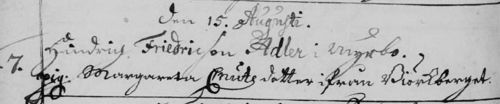 Den 15. Augusti.
Hindrich Friedricson Adler i Myrbo.
7. pig. Margareta Cnuts dotter ifrån Biörkberget.